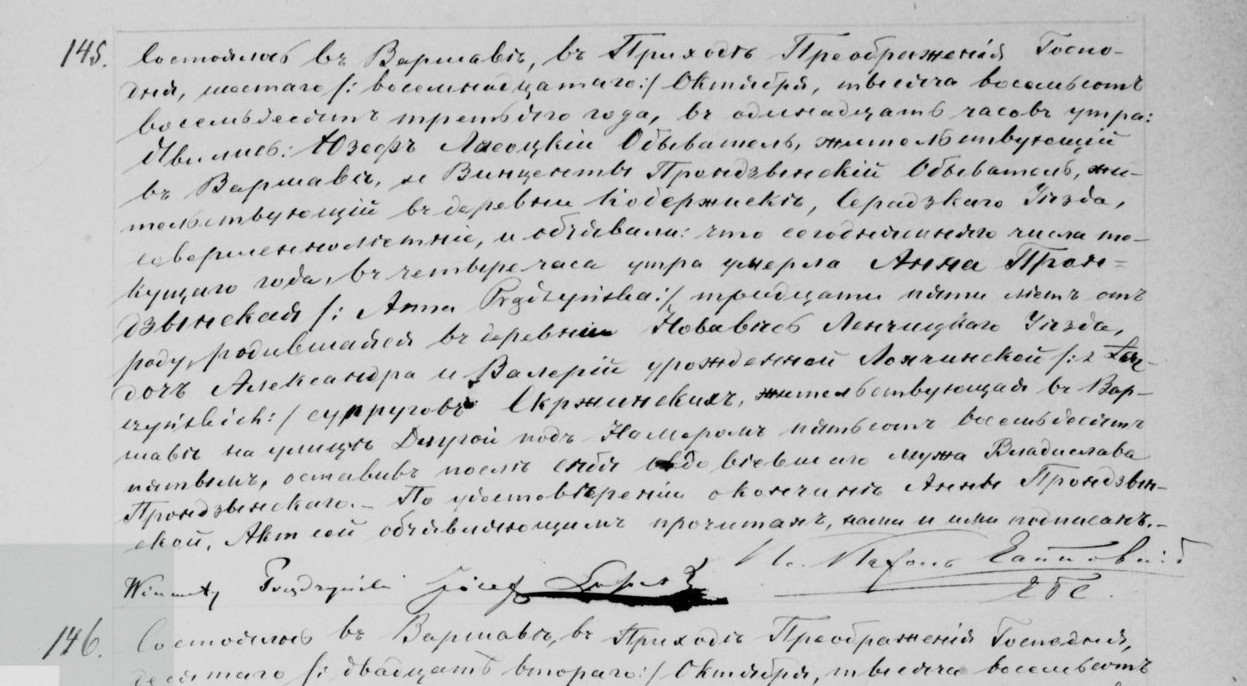 145. Состоялось въ Варшавѣ, въ Приходѣ Преображенія Госпо-
дня, шестаго /: восемнадцатаго :/ Октября, тысяча восемьсотъ
восемьдесятъ третьяго года, въ одинадцать часовъ утра:
Явились: Юзефъ Обыватель, жительствующій
въ Варшавѣ, и Винценты Прондзынскій Обыватель, жи-
тельствующій въ деревни Серадзкаго Уѣзда,
совершеннолѣтніе, и объявили: что сегодняшняго числа те-
кущаго года, въ четыре часа утра умерла Анна Прон=
дзынская /: Anna Prądzyńska :/ тридцати пяти лѣтъ отъ
роду, родившаяся въ деревни Новавесь Ленчицкаго Уѣзда,
дочь Александра и Валеріи урожденной Лончинской /: z Łą-
czyńskich :/ супруговъ Скржинскихъ, жительствующая въ Вар-
шавѣ на улицѣ Длугой подъ Номеромъ пятьсотъ восемьдесятъ
пятымъ, оставивъ послѣ себя овдовѣвшаго мужа Владислава
Прондзынскаго. – По удостовѣреніи о кончинѣ Анны Прондзын-
ской, Актъ сей объявляющимъ прочитанъ, нами и ими подписанъ. –
Wincenty Prądzyński Józef
146. Состоялось въ Варшавѣ, въ Приходѣ Преображенія Господня,
десятаго /: двадцать втораго :/ Октября, тысяча восемьсотъ